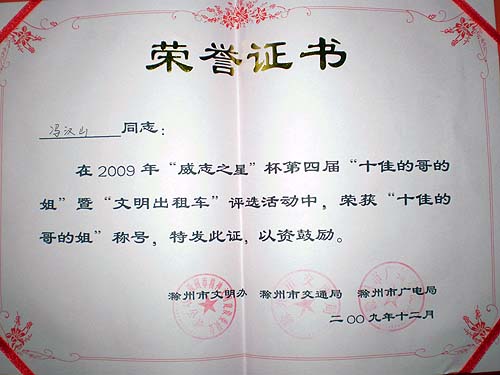 荣誉证书
冯汉山 同志：
在2009年“威志之星”杯第四届“十佳的哥的
姐”暨“文明出租车”评选活动中，荣获“十佳的
哥的姐”称号，特发此证，以资鼓励。
滁州市文明办 滁州市交通局 滁州市广电局
二00九年十二月